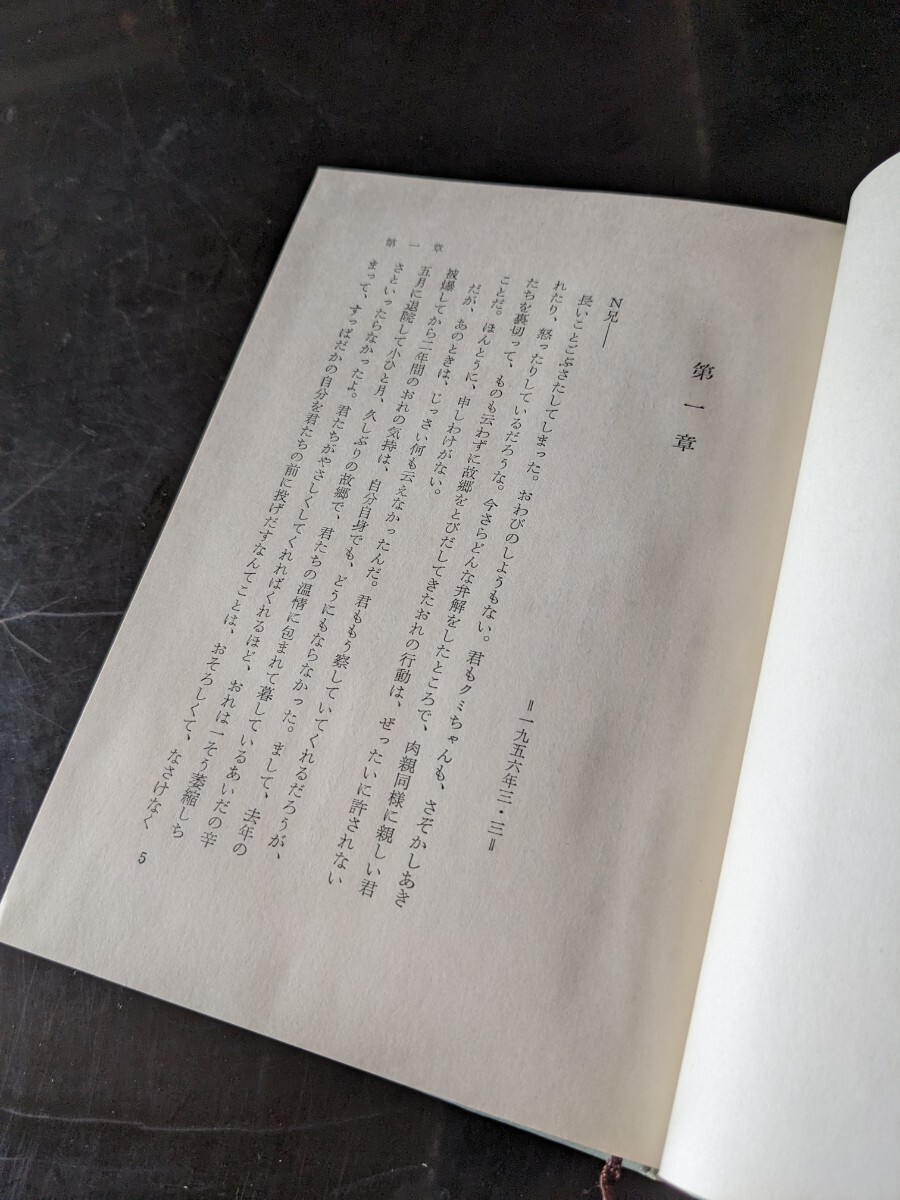 第一章
＝一九五六年三・三＝
N兄――
長いことごぶさたしてしまった。おわびのしようもない。君もクミちゃんも、さぞかしあき
れたり、怒ったりしているだろうな。今さらどんな弁解をしたところで、肉親同様に親しい君
たちを裏切って、ものも云わずに故郷をとびだしてきたおれの行動は、ぜったいに許されない
ことだ。ほんとうに、申しわけがない。
だが、あのときは、じっさい何も云えなかったんだ。君ももう察していてくれるだろうが、
被爆してから二年間のおれの気持は、自分自身でも、どうにもならなかった。まして、去年の
五月に退院して小ひと月、久しぶりの故郷で、君たちの温情に包まれて暮しているあいだの辛
さといったらなかったよ。君たちがやさしくしてくれればくれるほど、おれは一そう萎縮しち
まって、すっぱだかの自分を君たちの前に投げだすなんてことは、おそろしくて、なさけなく
第一章
5